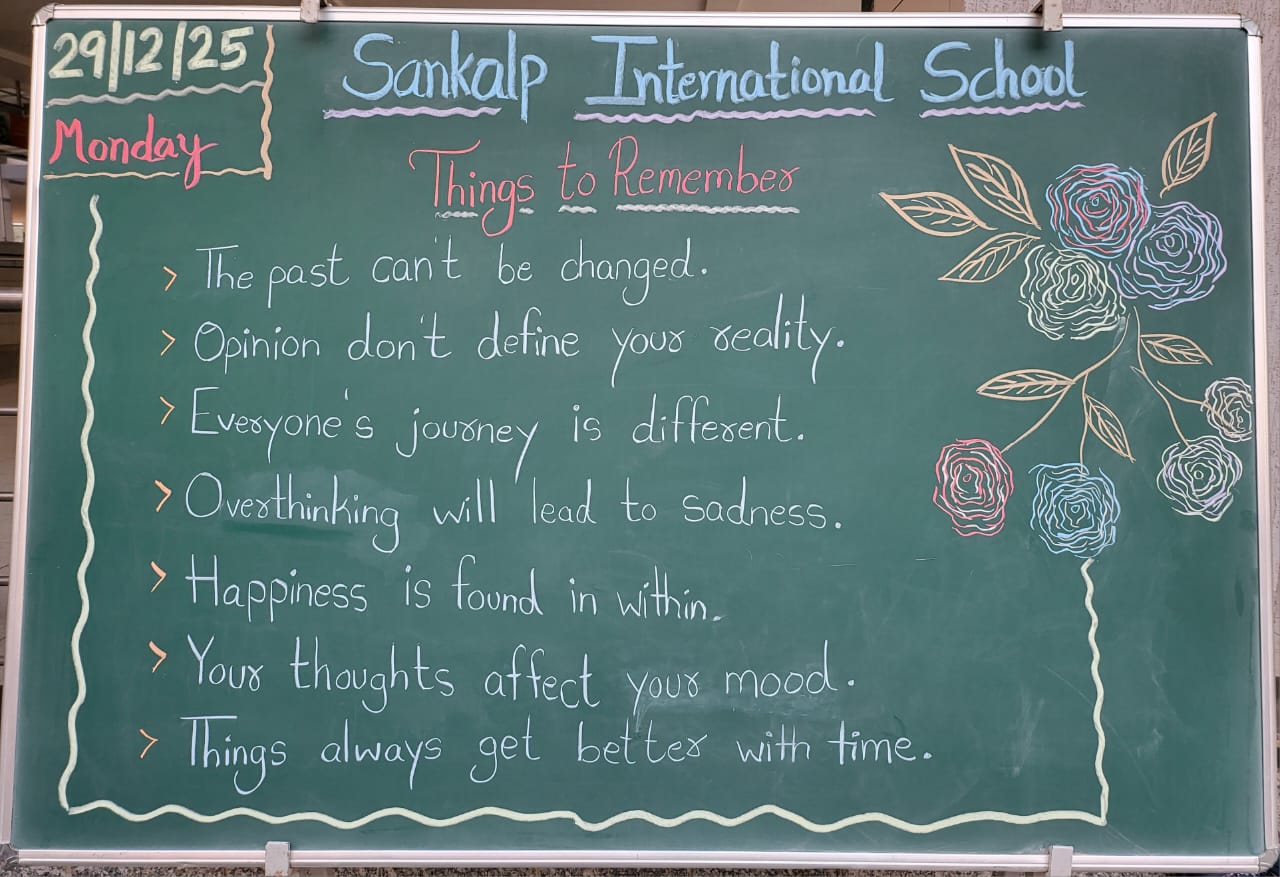 29/12/25
Monday
Sankalp International School
Things to Remember
> The past can't be changed.
> Opinion don't define your reality.
> Everyone's journey is different.
> Overthinking will lead to sadness.
> Happiness is found in within.
> Your thoughts affect your mood.
> Things always get better with time.